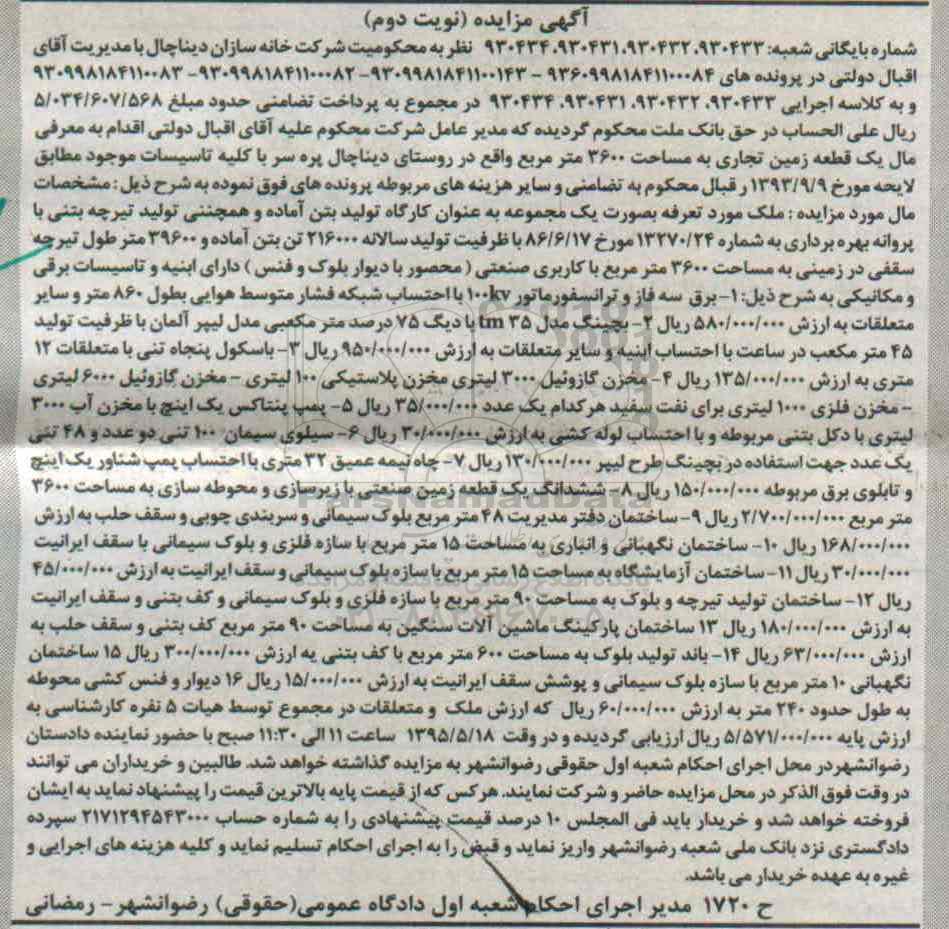 آگهی مزایده (نوبت دوم)
شماره بایگانی شعبه: ۹۳۰۴۳۳، ۹۳۰۴۳۲، ۹۳۰۴۳۱، ۹۳۰۴۳۴ نظر به محکومیت شرکت خانه سازان دیناچال با مدیریت آقای
اقبال دولتی در پرونده های ۹۳۶۰۹۹۸۱۸۴۱۱۰۰۰۸۴ - ۹۳۰۹۹۸۱۸۴۱۱۰۰۱۴۳ - ۹۳۰۹۹۸۱۸۴۱۱۰۰۰۸۲ - ۹۳۰۹۹۸۱۸۴۱۱۰۰۰۸۳
و به کلاسه اجرایی ۹۳۰۴۳۳، ۹۳۰۴۳۲، ۹۳۰۴۳۱، ۹۳۰۴۳۴ در مجموع به پرداخت تضامنی حدود مبلغ ۵/۰۳۴/۶۰۷/۵۶۸
ریال علی الحساب در حق بانک ملت محکوم گردیده که مدیر عامل شرکت محکوم علیه آقای اقبال دولتی اقدام به معرفی
مال یک قطعه زمین تجاری به مساحت ۳۶۰۰ متر مربع واقع در روستای دیناچال پره سر با کلیه تاسیسات موجود مطابق
لایحه مورخ ۱۳۹۳/۹/۹ ر قبال محکوم به تضامنی و سایر هزینه های مربوطه پرونده های فوق نموده به شرح ذیل: مشخصات
مال مورد مزایده: ملک مورد تعرفه بصورت یک مجموعه به عنوان کارگاه تولید بتن آماده و همچننی تولید تیرچه بتنی با
پروانه بهره برداری به شماره ۱۳۲۷۰/۲۴ مورخ ۸۶/۶/۱۷ با ظرفیت تولید سالانه ۲۱۶۰۰۰ تن بتن آماده و ۳۹۶۰۰ متر طول تیرچه
سقفی در زمینی به مساحت ۳۶۰۰ متر مربع با کاربری صنعتی (محصور با دیوار بلوک و فنس) دارای ابنیه و تاسیسات برقی
و مکانیکی به شرح ذیل: ۱- برق سه فاز و ترانسفورماتور ۱۰۰kv با احتساب شبکه فشار متوسط هوایی بطول ۸۶۰ متر و سایر
متعلقات به ارزش ۵۸۰/۰۰۰/۰۰۰ ریال ۲- بچینگ مدل ۳۵ tm با دیگ ۷۵ درصد متر مکعبی مدل لیپر آلمان با ظرفیت تولید
۴۵ متر مکعب در ساعت با احتساب ابنیه و سایر متعلقات به ارزش ۹۵۰/۰۰۰/۰۰۰ ریال ۳- باسکول پنجاه تنی با متعلقات ۱۲
متری به ارزش ۱۳۵/۰۰۰/۰۰۰ ریال ۴- مخزن گازوئیل ۳۰۰۰ لیتری مخزن پلاستیکی ۱۰۰ لیتری - مخزن گازوئیل ۶۰۰۰ لیتری
- مخزن فلزی ۱۰۰۰ لیتری برای نفت سفید هر کدام یک عدد ۳۵/۰۰۰/۰۰۰ ریال ۵- پمپ پنتاکس یک اینچ با مخزن آب ۳۰۰۰
لیتری با دکل بتنی مربوطه و با احتساب لوله کشی به ارزش ۳۰/۰۰۰/۰۰۰ ریال ۶- سیلوی سیمان ۱۰۰ تنی دو عدد و ۴۸ تنی
یک عدد جهت استفاده در بچینگ طرح لیپر ۱۳۰/۰۰۰/۰۰۰ ریال ۷- چاه نیمه عمیق ۳۲ متری با احتساب پمپ شناور یک اینچ
و تابلوی برق مربوطه ۱۵۰/۰۰۰/۰۰۰ ریال ۸- ششدانگ یک قطعه زمین صنعتی با زیرسازی و محوطه سازی به مساحت ۳۶۰۰
متر مربع ۲/۷۰۰/۰۰۰/۰۰۰ ریال ۹- ساختمان دفتر مدیریت ۴۸ متر مربع بلوک سیمانی و سربندی چوبی و سقف حلب به ارزش
۱۶۸/۰۰۰/۰۰۰ ریال ۱۰- ساختمان نگهبانی و انباری به مساحت ۱۵ متر مربع با سازه فلزی و بلوک سیمانی با سقف ایرانیت
۳۰/۰۰۰/۰۰۰ ریال ۱۱- ساختمان آزمایشگاه به مساحت ۱۵ متر مربع با سازه بلوک سیمانی و سقف ایرانیت به ارزش ۴۵/۰۰۰/۰۰۰
ریال ۱۲- ساختمان تولید تیرچه و بلوک به مساحت ۹۰ متر مربع با سازه فلزی و بلوک سیمانی و کف بتنی و سقف ایرانیت
به ارزش ۱۸۰/۰۰۰/۰۰۰ ریال ۱۳ ساختمان پارکینگ ماشین آلات سنگین به مساحت ۹۰ متر مربع کف بتنی و سقف حلب به
ارزش ۶۳/۰۰۰/۰۰۰ ریال ۱۴- باند تولید بلوک به مساحت ۶۰۰ متر مربع با کف بتنی به ارزش ۳۰۰/۰۰۰/۰۰۰ ریال ۱۵ ساختمان
نگهبانی ۱۰ متر مربع با سازه بلوک سیمانی و پوشش سقف ایرانیت به ارزش ۱۵/۰۰۰/۰۰۰ ریال ۱۶ دیوار و فنس کشی محوطه
به طول حدود ۲۴۰ متر به ارزش ۶۰/۰۰۰/۰۰۰ ریال که ارزش ملک و متعلقات در مجموع توسط هیات ۵ نفره کارشناسی به
ارزش پایه ۵/۵۷۱/۰۰۰/۰۰۰ ریال ارزیابی گردیده و در وقت ۱۳۹۵/۵/۱۸ ساعت ۱۱ الی ۱۱:۳۰ صبح با حضور نماینده دادستان
رضوانشهر در محل اجرای احکام شعبه اول حقوقی رضوانشهر به مزایده گذاشته خواهد شد. طالبین و خریداران می توانند
در وقت فوق الذکر در محل مزایده حاضر و شرکت نمایند. هرکس که از قیمت پایه بالاترین قیمت را پیشنهاد نماید به ایشان
فروخته خواهد شد و خریدار باید فی المجلس ۱۰ درصد قیمت پیشنهادی را به شماره حساب ۲۱۷۱۲۹۴۵۴۳۰۰۰ سپرده
دادگستری نزد بانک ملی شعبه رضوانشهر واریز نماید و قبض را به اجرای احکام تسلیم نماید و کلیه هزینه های اجرایی و
غیره به عهده خریدار می باشد.
ح ۱۷۲۰ مدیر اجرای احکام شعبه اول دادگاه عمومی (حقوقی) رضوانشهر - رمضانی